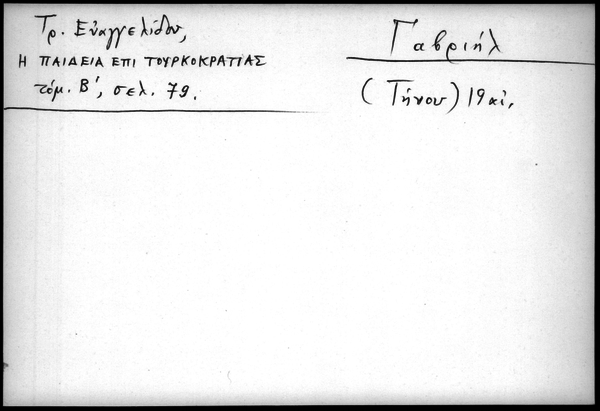 Τρ. Εὐαγγελίδου,
Η ΠΑΙΔΕΙΑ ΕΠΙ ΤΟΥΡΚΟΚΡΑΤΙΑΣ
τόμ. Β', σελ. 79.
Γαβριήλ
(Τήνου) 19 αἰ.